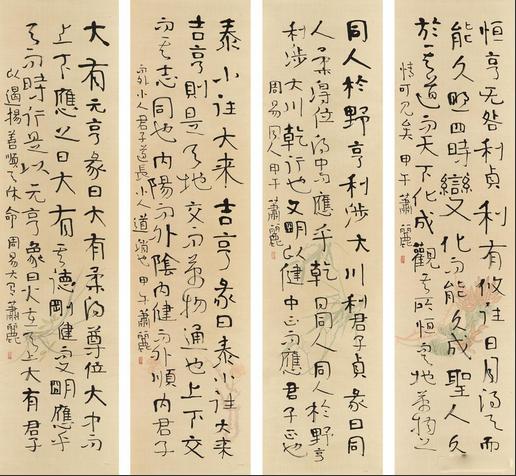 恒亨无咎利貞利有攸往日月得天而
能久照四時變化而能久成聖人久
於其道而天下化成觀其所恒天地萬物之
情可見矣 甲午蕭麗
同人於野亨利涉大川利君子貞彖曰同
人柔得位得中而應乎乾曰同人同人於野亨
利涉大川乾行也文明以健中正而應君子正也
周易同人 甲午蕭麗
泰小往大來吉亨彖曰泰小往大來
吉亨則是天地交而萬物通也上下交
而其志同也內陽而外陰內健而外順內君子
而外小人君子道長小人道消也 甲午蕭麗
大有元亨彖曰大有柔得尊位大中而
上下應之曰大有其德剛健而文明應乎
天而時行是以元亨象曰火在天上大有君子
以遏揚善順天休命 周易大有 蕭麗